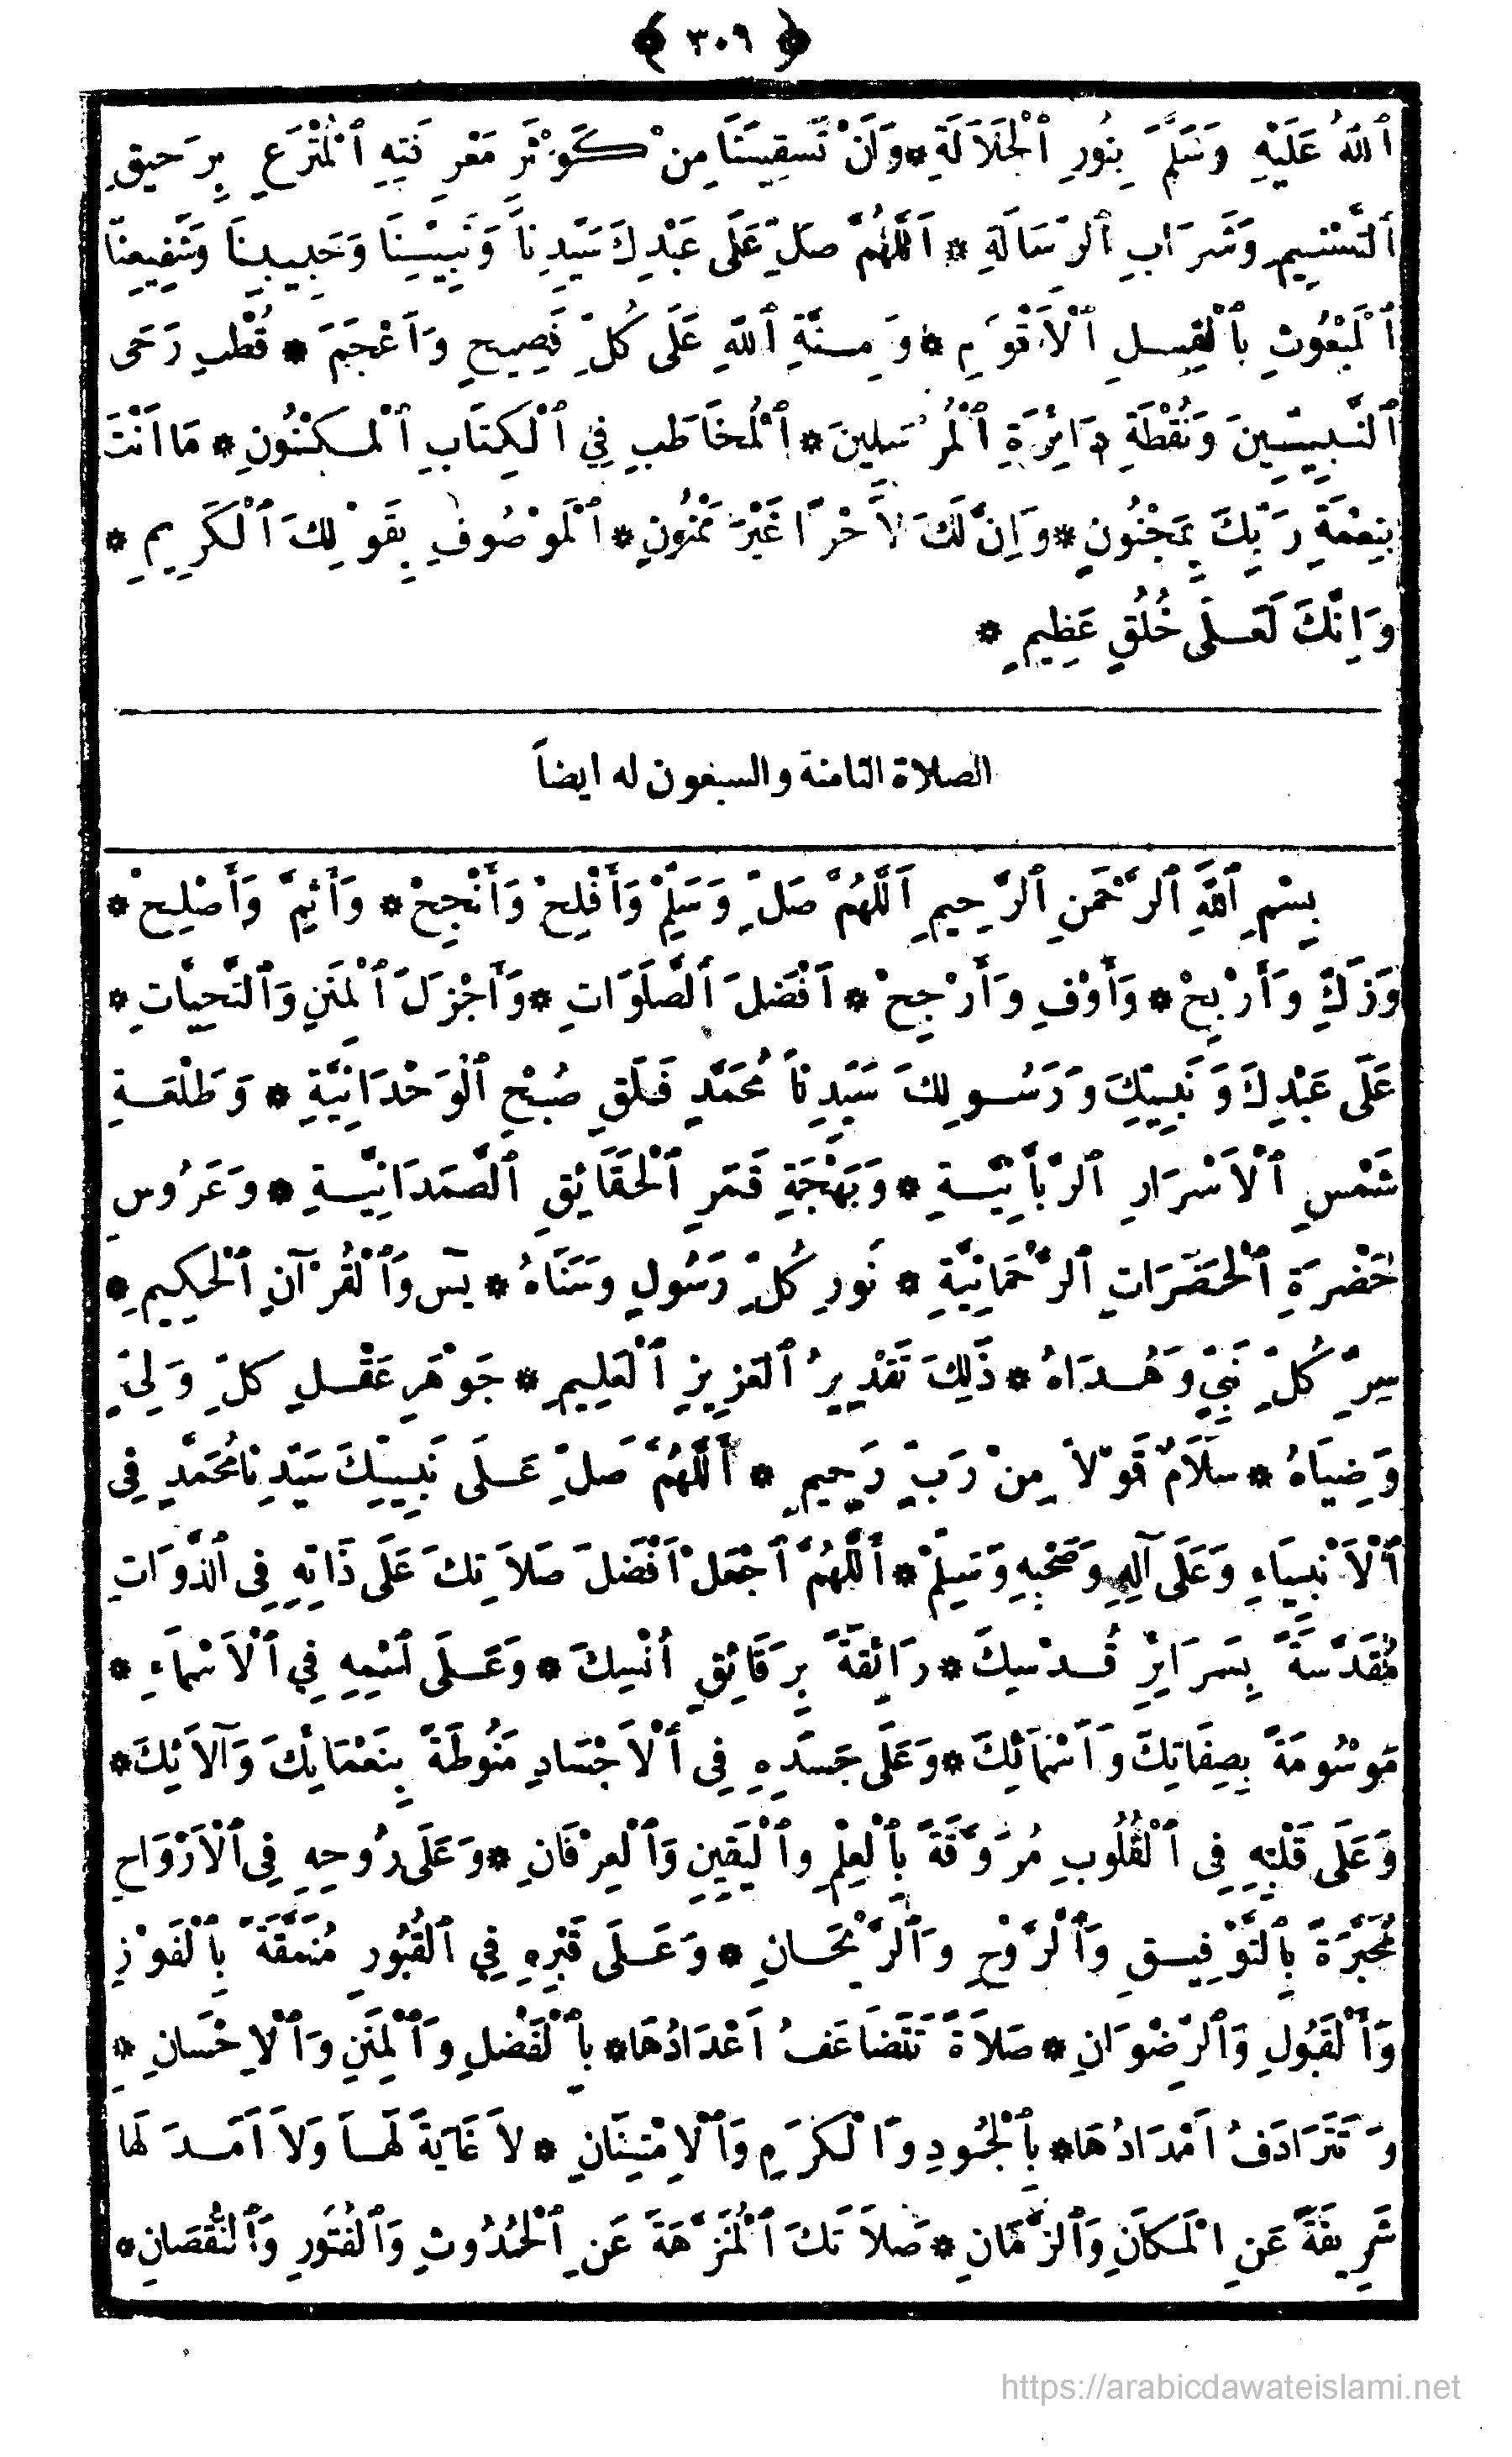 ﴿ ٣٠٩ ﴾
ٱللهُ عَلَيْهِ وَسَلَّمَ بِنُورِ ٱلْجَلَالَةِ * وَأَنْ تَسْقِيَنَا مِنْ كَوْثَرِ مَعْرِفَتِهِ ٱلْمُتْرَعِ بِرَحِيقِ
ٱلتَّسْنِيمِ وَشَرَابِ ٱلرِّسَالَةِ * اَللّٰهُمَّ صَلِّ عَلَى عَبْدِكَ سَيِّدِنَا وَنَبِيِّنَا وَحَبِيبِنَا وَشَفِيعِنَا
ٱلْمَبْعُوثِ بِٱلْقِيلِ ٱلْأَقْوَمِ * وَمِنَّةِ ٱللهِ عَلَى كُلِّ فَصِيحٍ وَاَعْجَمَ * قُطْبِ رَحَى
ٱلنَّبِيِّينَ وَنُقْطَةِ دَائِرَةِ ٱلْمُرْسَلِينَ * ٱلْمُخَاطَبِ فِي ٱلْكِتَابِ ٱلْمَكْنُونِ * مَا اَنْتَ
بِنِعْمَةِ رَبِّكَ بِمَجْنُونٍ * وَاِنَّ لَكَ لَاَجْرًا غَيْرَ مَمْنُونٍ * ٱلْمَوْصُوفِ بِقَوْلِكَ ٱلْكَرِيمِ *
وَاِنَّكَ لَعَلَى خُلُقٍ عَظِيمٍ *
الصلاة الثامنة والسبعون له ايضاً
بِسْمِ ٱللهِ ٱلرَّحْمَنِ ٱلرَّحِيمِ اَللّٰهُمَّ صَلِّ وَسَلِّمْ وَأَفْلِحْ وَأَنْجِحْ * وَأَتِمَّ وَأَصْلِحْ *
وَزَكِّ وَأَرْبِحْ * وَأَوْفِ وَأَرْجِحْ * اَفْضَلَ ٱلصَّلَوَاتِ * وَاَجْزَلَ ٱلْمِنَنِ وَٱلتَّحِيَّاتِ *
عَلَى عَبْدِكَ وَنَبِيِّكَ وَرَسُولِكَ سَيِّدِنَا مُحَمَّدٍ فَلَقِ صُبْحِ ٱلْوَحْدَانِيَّةِ * وَطَلْعَةِ
شَمْسِ ٱلْاَسْرَارِ ٱلرَّبَّانِيَّةِ * وَبَهْجَةِ قَمَرِ ٱلْحَقَائِقِ ٱلصَّمَدَانِيَّةِ * وَعَرُوسِ
حَضْرَةِ ٱلْحَضَرَاتِ ٱلرَّحْمَانِيَّةِ * نُورِ كُلِّ رَسُولٍ وَسَنَاهُ * يٓس وَٱلْقُرْآنِ ٱلْحَكِيمِ *
سِرِّ كُلِّ نَبِيٍّ وَهُدَاهُ * ذَلِكَ تَقْدِيرُ ٱلعَزِيزِ ٱلْعَلِيمِ * جَوْهَرِ عَقْلِ كُلِّ وَلِيٍّ
وَضِيَاهُ * سَلَامٌ قَوْلًا مِنْ رَبٍّ رَحِيمٍ * أَللّٰهُمَّ صَلِّ عَلَى نَبِيِّكَ سَيِّدِنَا مُحَمَّدٍ فِى
ٱلْاَنْبِيَاءِ وَعَلَى آلِهِ وَصَحْبِهِ وَسَلِّمْ * أَللّٰهُمَّ ٱجْعَلْ اَفْضَلَ صَلَاتِكَ عَلَى ذَاتِهِ فِى ٱلذَّوَاتِ
مُقَدَّسَةً بِسَرَايِرِ قُدْسِكَ * رَائِقَةً بِرَقَائِقِ اُنْسِكَ * وَعَلَى ٱسْمِهِ فِي ٱلْاَسْمَاءِ *
مَوْسُومَةً بِصِفَاتِكَ وَاَسْمَائِكَ * وَعَلَى جَسَدِهِ فِى ٱلْاَجْسَادِ مَنُوطَةً بِنَعْمَائِكَ وَآلَائِكَ *
وَعَلَى قَلْبِهِ فِى ٱلْقُلُوبِ مُرَوَّقَةً بِٱلْعِلْمِ وٱلْيَقِينِ وَٱلْعِرْفَانِ * وَعَلَى رُوحِهِ فِى ٱلْاَرْوَاحِ
مُحَبَّرَةً بِٱلتَّوْفِيقِ وَٱلرَّوْحِ وَٱلرَّيْحَانِ * وَعَلَى قَبْرِهِ فِي ٱلقُبُورِ مُنَمَّقَةً بِٱلْفَوْزِ
وَٱلْقَبُولِ وَٱلرِّضْوَانِ * صَلَاةً تَتَضَاعَفُ اَعْدَادُهَا * بِٱلْفَضْلِ وَٱلْمِنَنِ وَٱلْاِحْسَانِ *
وَتَتَرَادَفُ اَمْدَادُهَا * بِٱلْجُودِ وَٱلْكَرَمِ وَٱلْاِمْتِنَانِ * لَا غَايَةَ لَهَا وَلَا اَمَدَ لَهَا
شَرِيفَةً عَنِ ٱلْمَكَانِ وَٱلزَّمَانِ * صَلَاتَكَ ٱلْمُنَزَّهَةَ عَنِ ٱلْحُدُوثِ وَٱلْفُتُورِ وَٱلنُّقْصَانِ *
https://arabicdawateislami.net